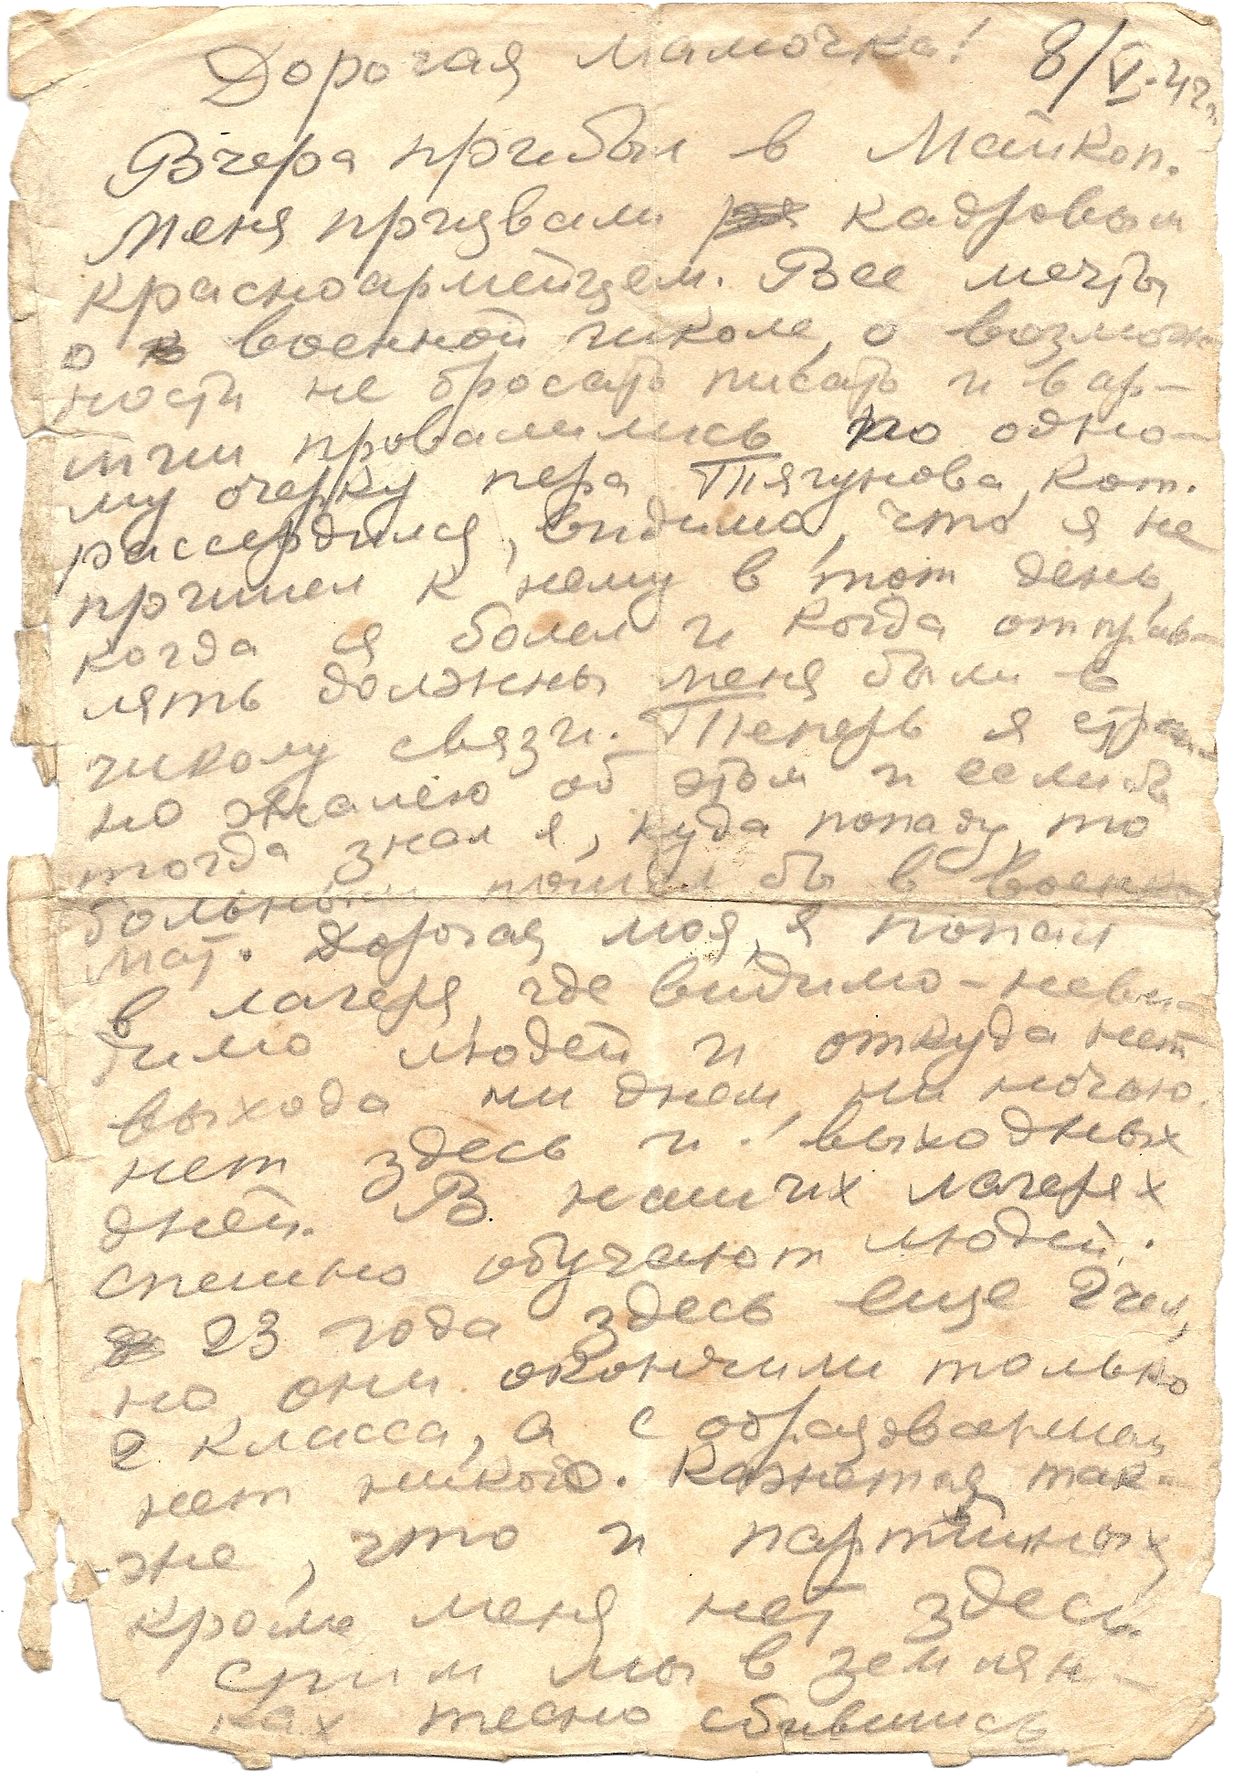 Дорогая мамочка! 8/V-42г.
Вчера прибыл в Майкоп.
Меня призвали кадровым
красноармейцем. Все мечты
о военной школе, о возмож-
ности не бросать писать и в ар-
мии провалились по одно-
му очерку пера Тягунова, кот.
рассердился, видимо, что я не
пришел к нему в тот день,
когда я болел и когда отправ-
лять должны меня были в
школу связи. Теперь я страш-
но жалею об этом и еслиб
тогда знал я, куда попаду, то
больным пошел бы в военко-
мат. Дорогая моя, я попал
в лагеря, где видимо-неви-
димо людей и откуда нет
выхода ни днем, ни ночью.
нет здесь и выходных
дней. В наших лагерях
спешно обучают людей.
23 года здесь еще 2 чел,
но они окончили только
2 класса, а с образованием
нет никого. Кажется так-
же, что и партийных
кроме меня нет здесь.
Спим мы в землян-
ках тесно сбившись